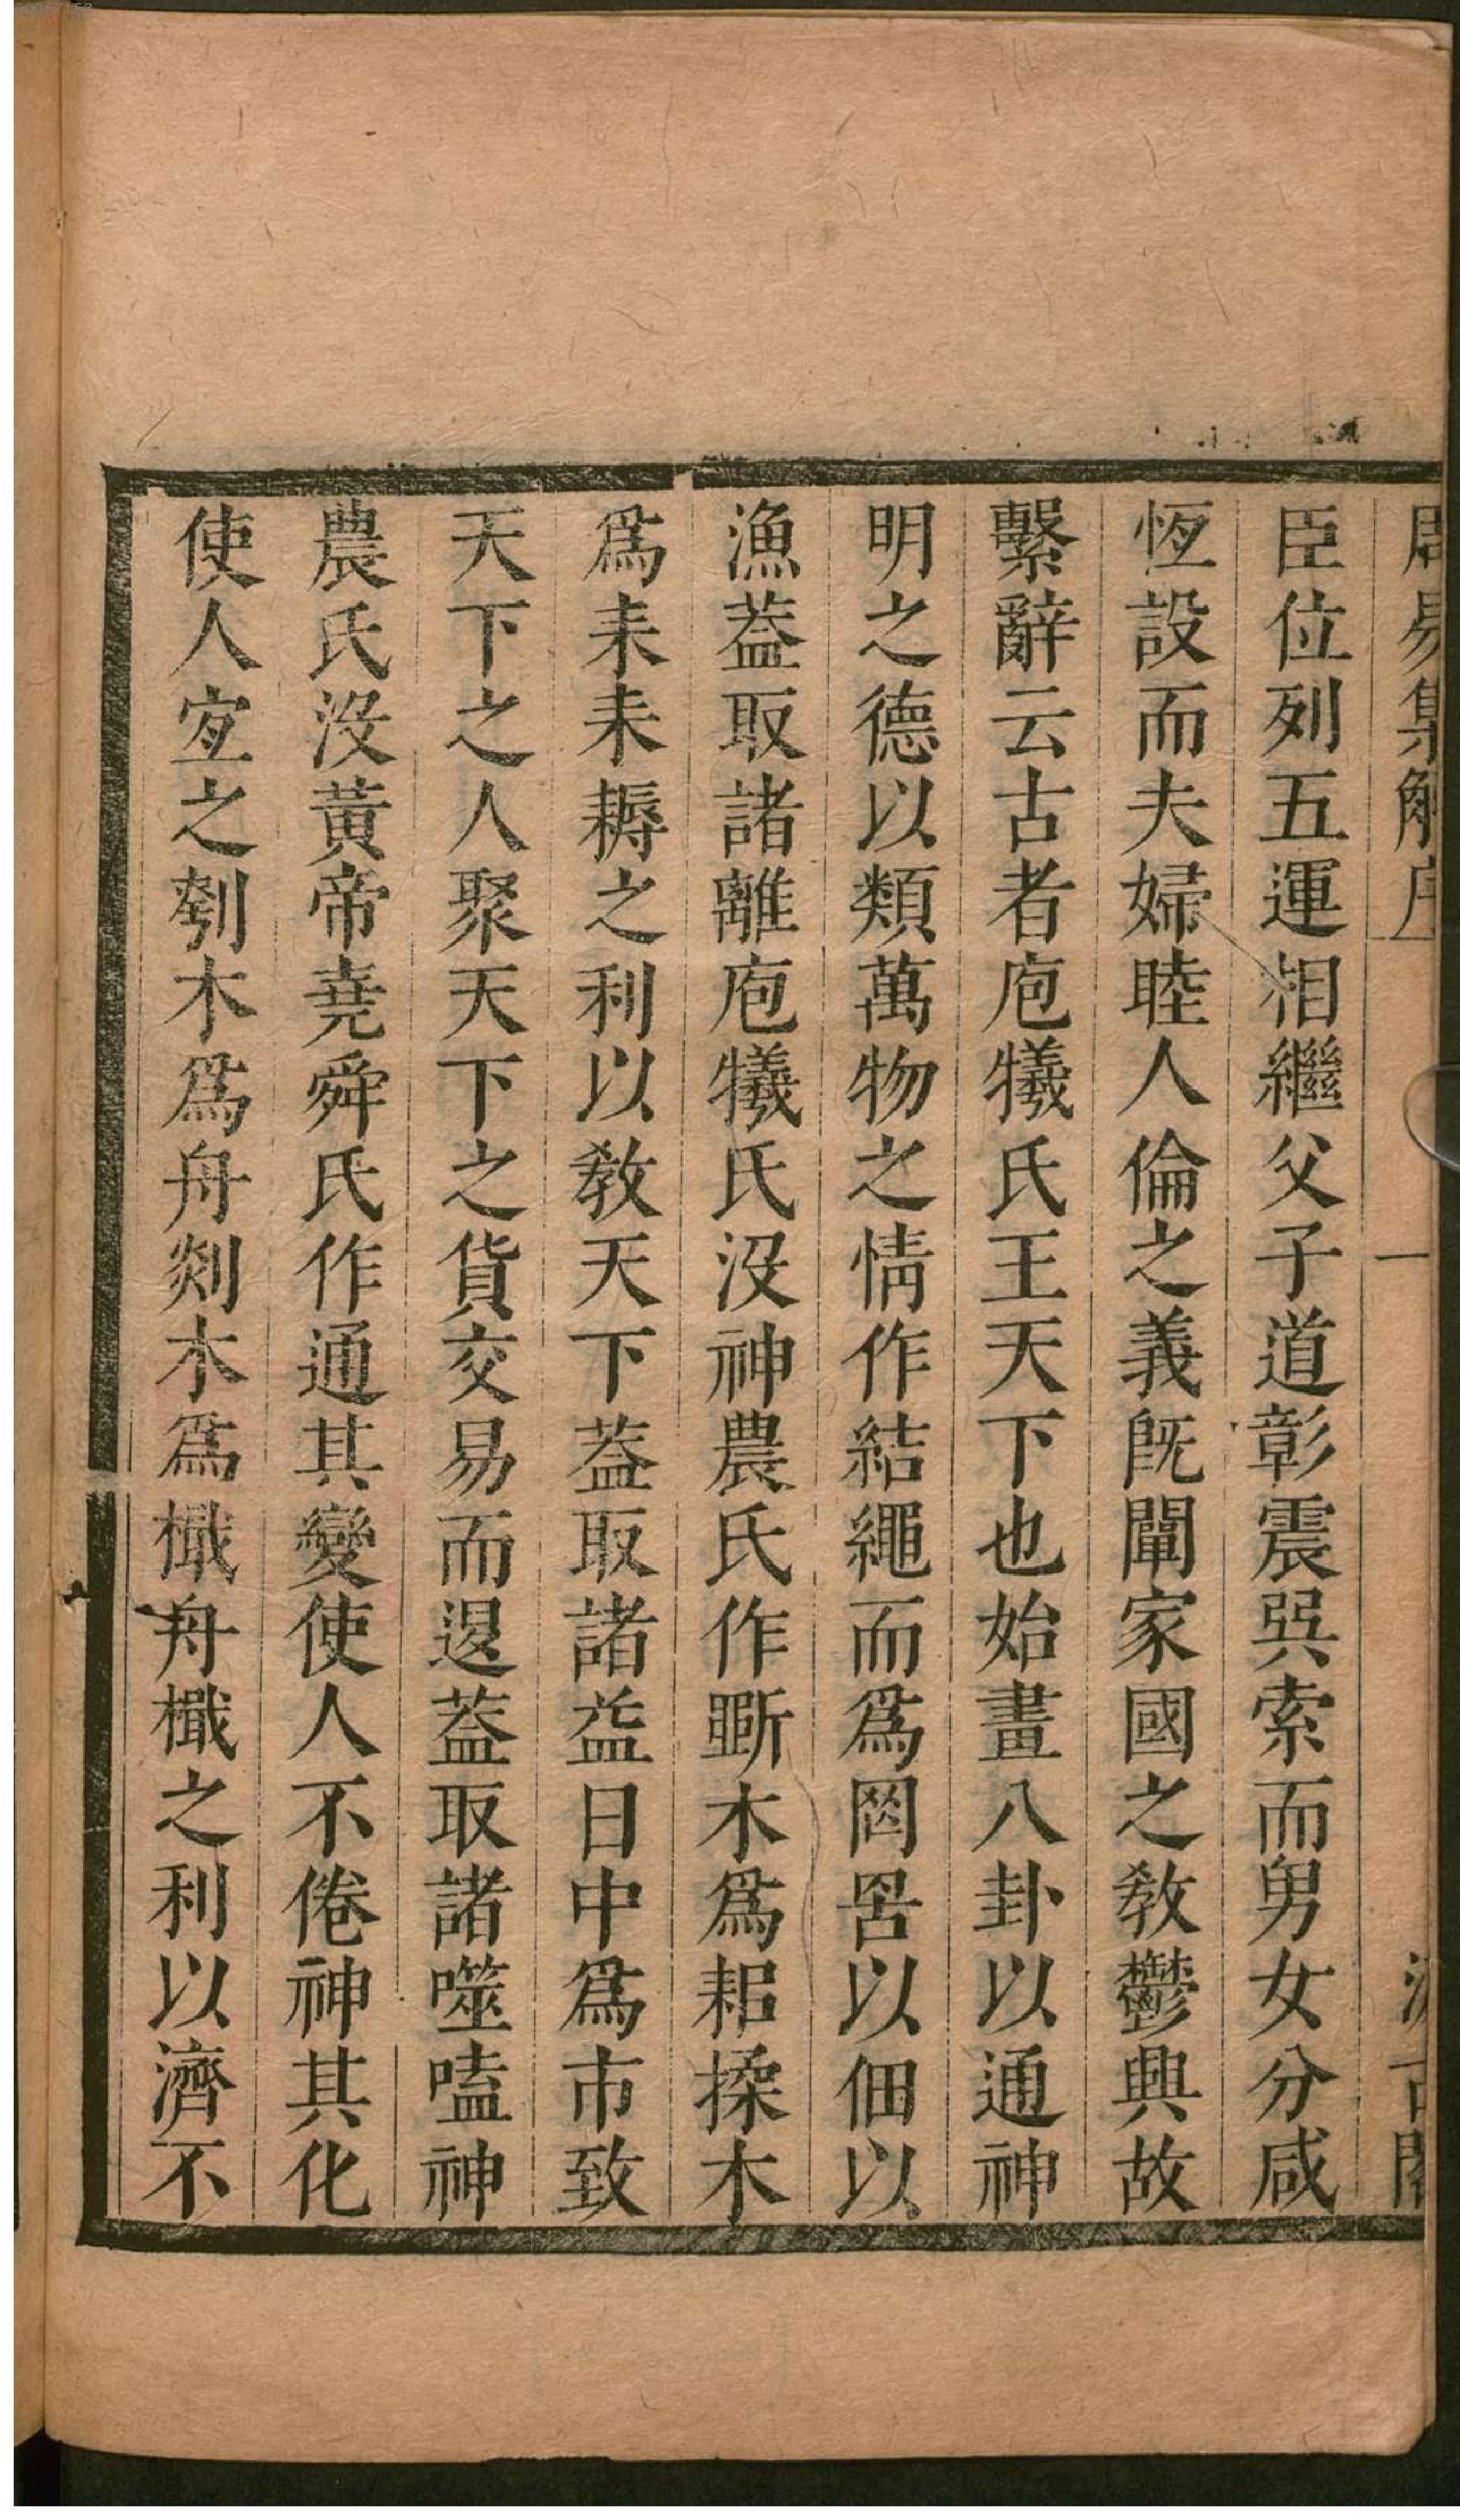 周易集解序 一 汲古閣
臣位列五運相繼父子道彰震巽索而男女分咸
恆設而夫婦睦人倫之義旣闡家國之敎鬱興故
繫辭云古者庖犧氏王天下也始畫八卦以通神
明之德以類萬物之情作結繩而爲罔罟以佃以
漁葢取諸離庖犧氏沒神農氏作斲木爲耜揉木
爲耒耒耨之利以敎天下葢取諸益日中爲市致
天下之人聚天下之貨交易而退葢取諸噬嗑神
農氏沒黃帝堯舜氏作通其變使人不倦神其化
使人宐之刳木爲舟剡木爲檝舟檝之利以濟不